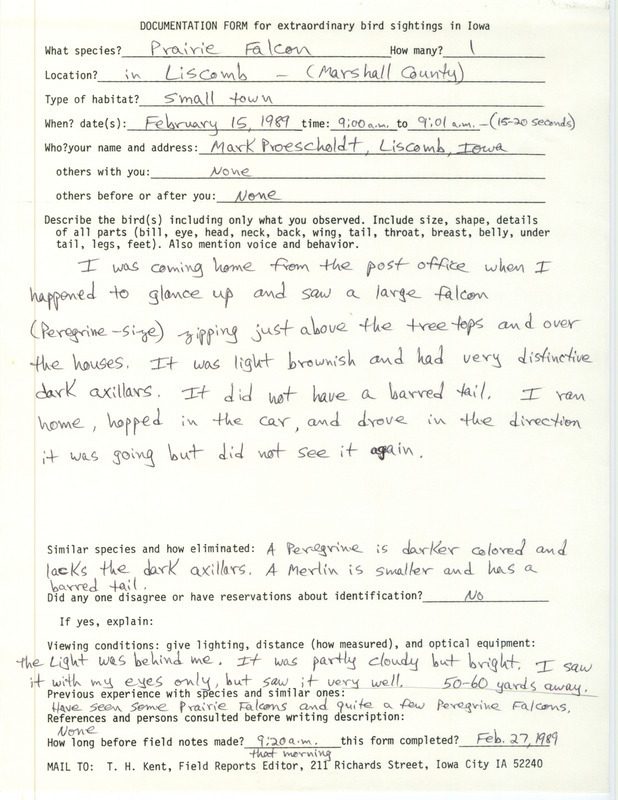 DOCUMENTATION FORM for extraordinary bird sightings in Iowa
What species? Prairie Falcon How many? 1
Location? in Liscomb - (Marshall County)
Type of habitat? Small town
When? date(s): February 15, 1989 time: 9:00 a.m. to 9:01 a.m. - (15-20 seconds)
Who?your name and address: Mark Proescholdt, Liscomb, Iowa
others with you: None
others before or after you: None
Describe the bird(s) including only what you observed. Include size, shape, details
of all parts (bill, eye, head, neck, back, wing, tail, throat, breast, belly, under
tail, legs, feet). Also mention voice and behavior.
I was coming home from the post office when I
happened to glance up and saw a large falcon
(Peregrine-size) zipping just above the tree tops and over
the houses. It was light brownish and had very distinctive
dark axillars. It did not have a barred tail. I ran
home, hopped in the car, and drove in the direction
it was going but did not see it again.
Similar species and how eliminated: A Peregrine is darker colored and
lacks the dark axillars. A Merlin is smaller and has a
barred tail.
Did any one disagree or have reservations about identification? No
If yes, explain:
Viewing conditions: give lighting, distance (how measured), and optical equipment:
the Light was behind me. It was partly cloudy but bright. I saw
it with my eyes only, but saw it very well. 50-60 yards away.
Previous experience with species and similar ones:
Have seen some Prairie Falcons and quite a few Peregrine Falcons.
References and persons consulted before writing description:
None
How long before field notes made? 9:20 a.m. this form completed? Feb. 27, 1989
that morning
MAIL TO: T. H. Kent, Field Reports Editor, 211 Richards Street, Iowa City IA 52240